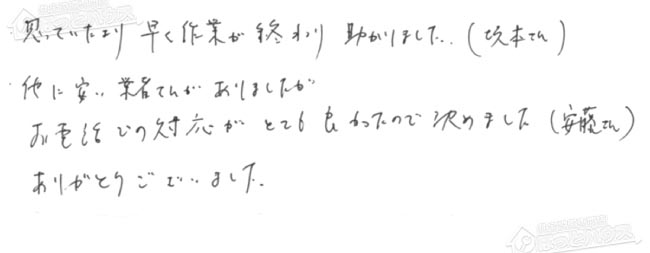 思っていたより 早く作業が終わり 助かりました。(坂本さん)
他に安い業者さんがありましたが
お電話での対応がとても良かったので決めました(安藤さん)
ありがとうございました。